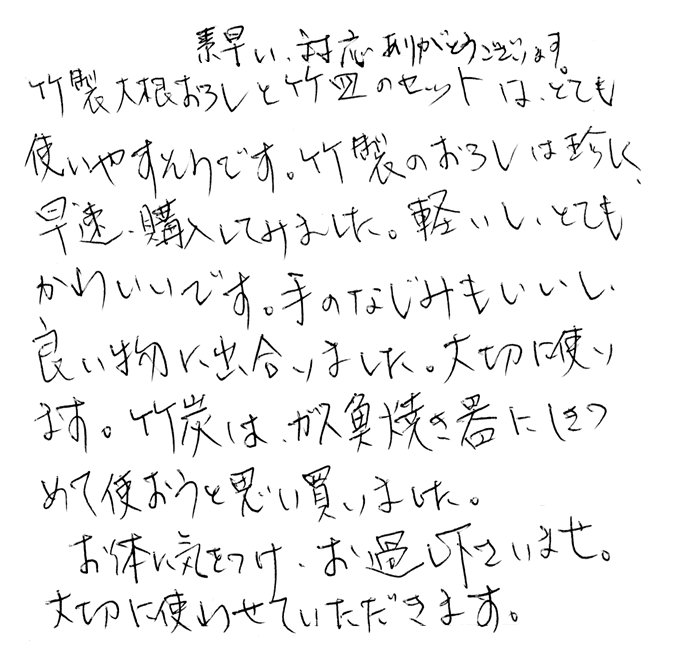 素早い、対応ありがとうございます。
竹製大根おろしと竹皿のセットは、とても
使いやすそうです。竹製のおろしは珍しく、
早速、購入してみました。軽いし、とても
かわいいです。手のなじみもいいし、
良い物に出合いました。大切に使い
ます。竹炭は、ガス魚焼き器にしきつ
めて使おうと思い買いました。
お体に気をつけ、お過し下さいませ。
大切に使わせていただきます。